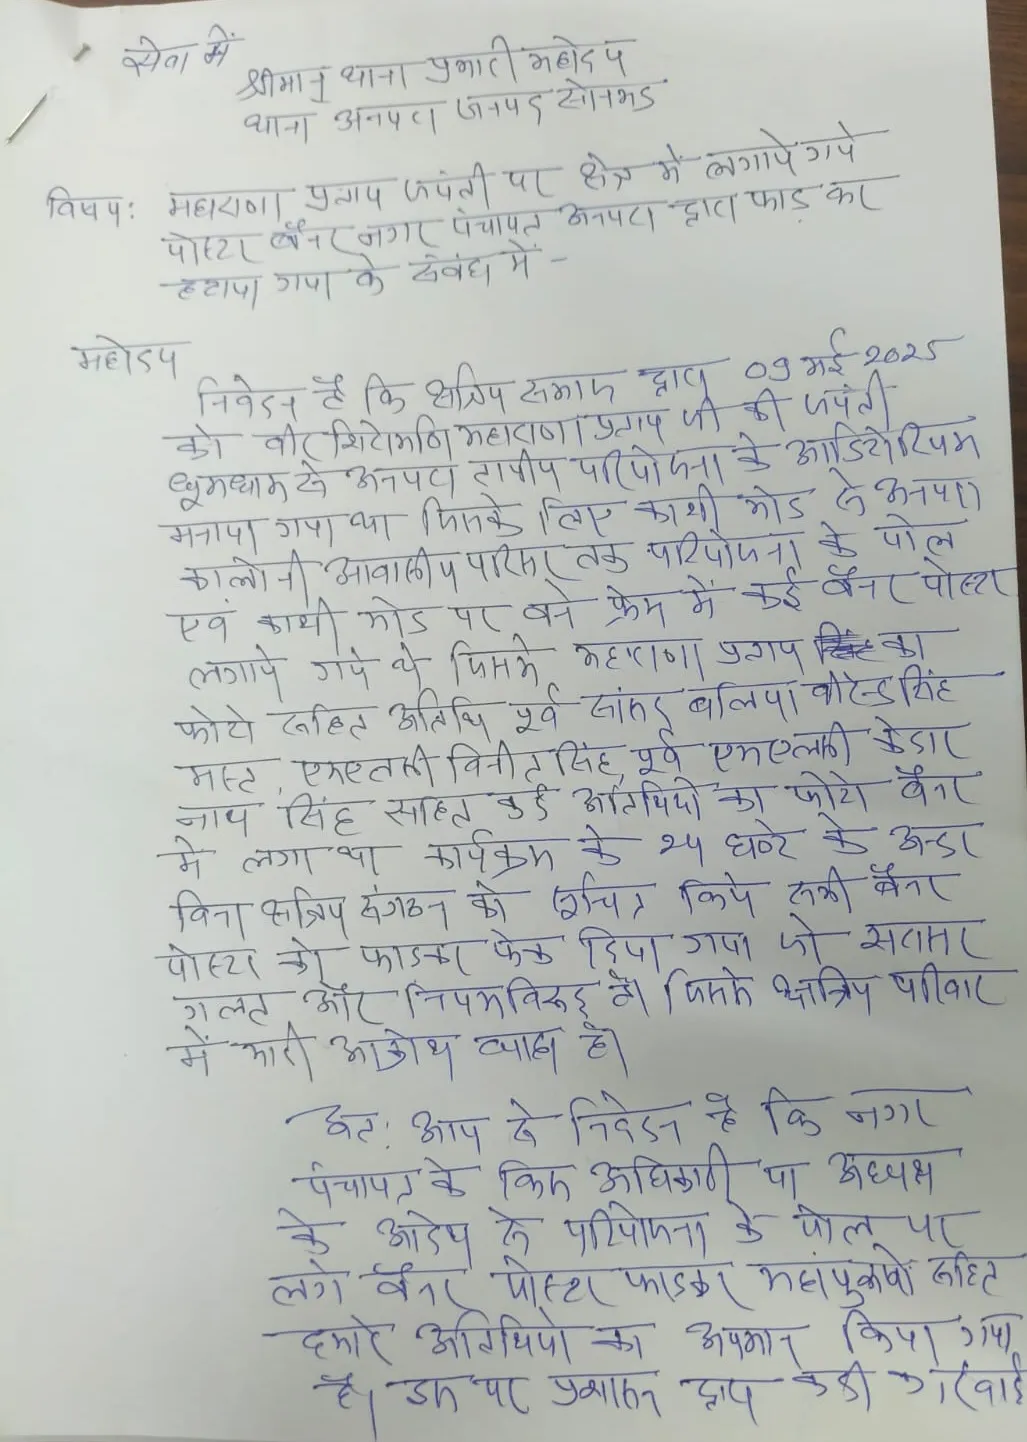 सेवा में
श्रीमान् थाना प्रभारी महोदय
थाना अनपरा जनपद सोनभद्र
विषय: महाराणा प्रताप जयंती पर क्षेत्र में लगाये गये
पोस्टर बैनर नगर पंचायत अनपरा द्वारा फाड़ कर
हटाया गया के संबंध में -
महोदय
निवेदन है कि क्षत्रिय समाज द्वारा 09 मई 2025
को वीर शिरोमणि महाराणा प्रताप जी की जयंती
धूमधाम से अनपरा तापीय परियोजना के आडिटोरियम
मनाया गया था जिसके लिए काशी मोड से अनपरा
कालोनी आवासीय परिसर तक परियोजना के पोल
एवं काशी मोड पर बने फ्रेम में कई बैनर पोस्टर
लगाये गये थे जिसमे महाराणा प्रताप का
फोटो सहित अतिथि पूर्व सांसद बलिया वीरेन्द्र सिंह
मस्त, एमएलसी विनीत सिंह, पूर्व एमएलसी केदार
नाथ सिंह सहित कई अतिथियो का फोटो बैनर
मे लगा था कार्यक्रम के २४ घण्टे के अन्दर
बिना क्षत्रिय संगठन को सूचित किये सभी बैनर
पोस्टर को फाडकर फेक दिया गया जो सरासर
गलत और नियमविरूद्ध है। जिससे क्षत्रिय परिवार
में भारी आक्रोश व्याप्त है।
अत: आप से निवेदन है कि नगर
पंचायत के किस अधिकारी या अध्यक्ष
के आदेश से परियोजना के पोल पर
लगे बैनर पोस्टर फाडकर महापुरुषो सहित
हमारे अतिथियो का अपमान किया गया
है। इस पर प्रशासन द्वारा कडी कारवाई